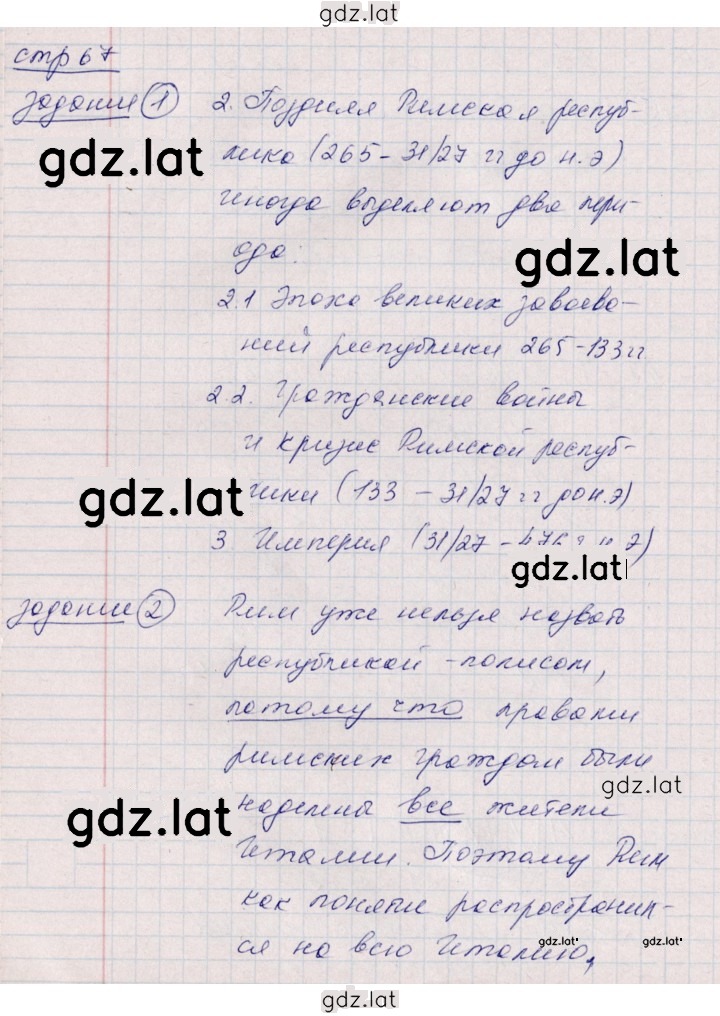 gdz.lat
стр 67
задание 1 2. Поздняя Римская респуб-
gdz.lat
лика (265 - 31/27 гг до н.э)
Иногда выделяют два пери-
ода:
gdz.lat
2.1 Эпоха великих завоева-
ний республики 265-133гг
2.2. Гражданские войны
и кризис Римской респуб-
gdz.lat
лики (133 - 31/27 гг до н.э)
3 Империя (31/27 -
gdz.lat
задание 2 Рим уже нельзя назвать
республикой -полисом,
потому что правами
римских граждан были
gdz.lat
наделены все жители
gdz.lat
Италии. Поэтому Рим
как поняти распространил-
ся на всю Италию,
gdz.lat gdz.lat
gdz.lat